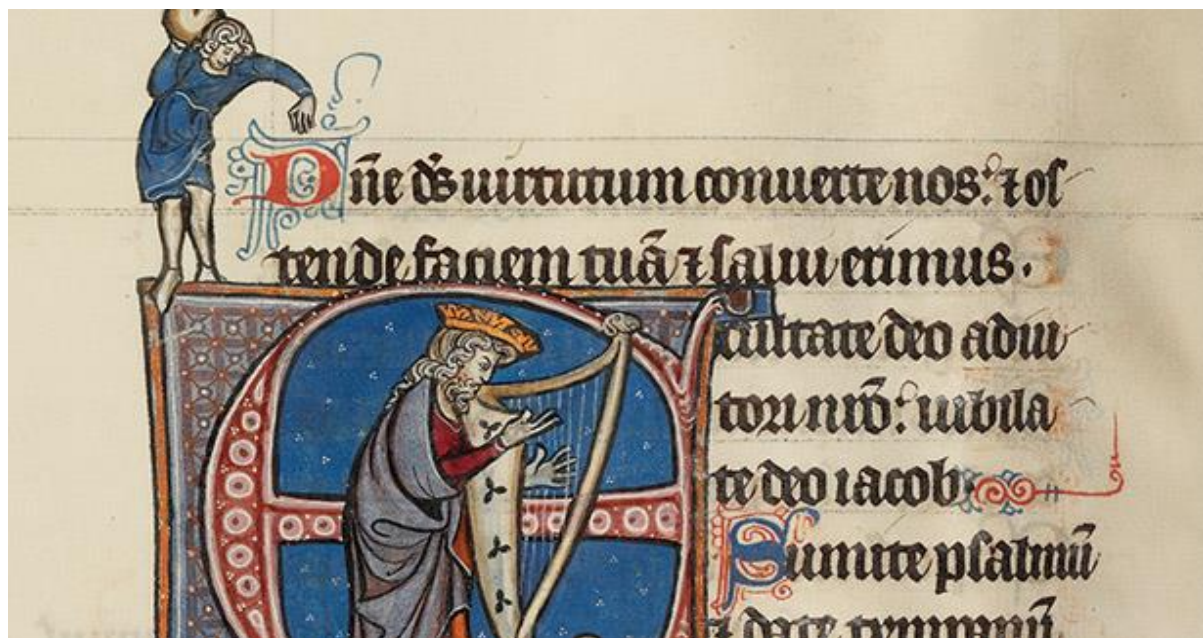 Dñe ds̄ uirtutum conuerte nos: ⁊ os
tende faciem tuā ⁊ salui erimus.
Exultate deo adiu
tori nr̄o: iubila
te deo iacob
Sumite psalmū
⁊ date tympanū